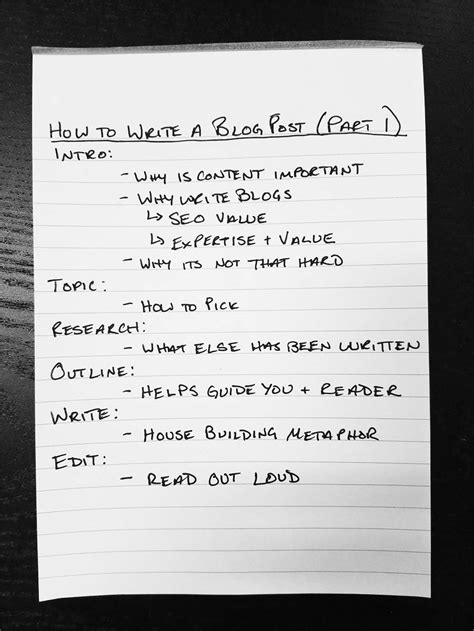 HOW TO WRITE A BLOG POST (PART 1)
INTRO:
- WHY IS CONTENT IMPORTANT
- WHY WRITE BLOGS
↳ SEO VALUE
↳ EXPERTISE + VALUE
- WHY ITS NOT THAT HARD
TOPIC:
- HOW TO PICK
RESEARCH:
- WHAT ELSE HAS BEEN WRITTEN
OUTLINE:
- HELPS GUIDE YOU + READER
WRITE:
- HOUSE BUILDING METAPHOR
EDIT:
- READ OUT LOUD